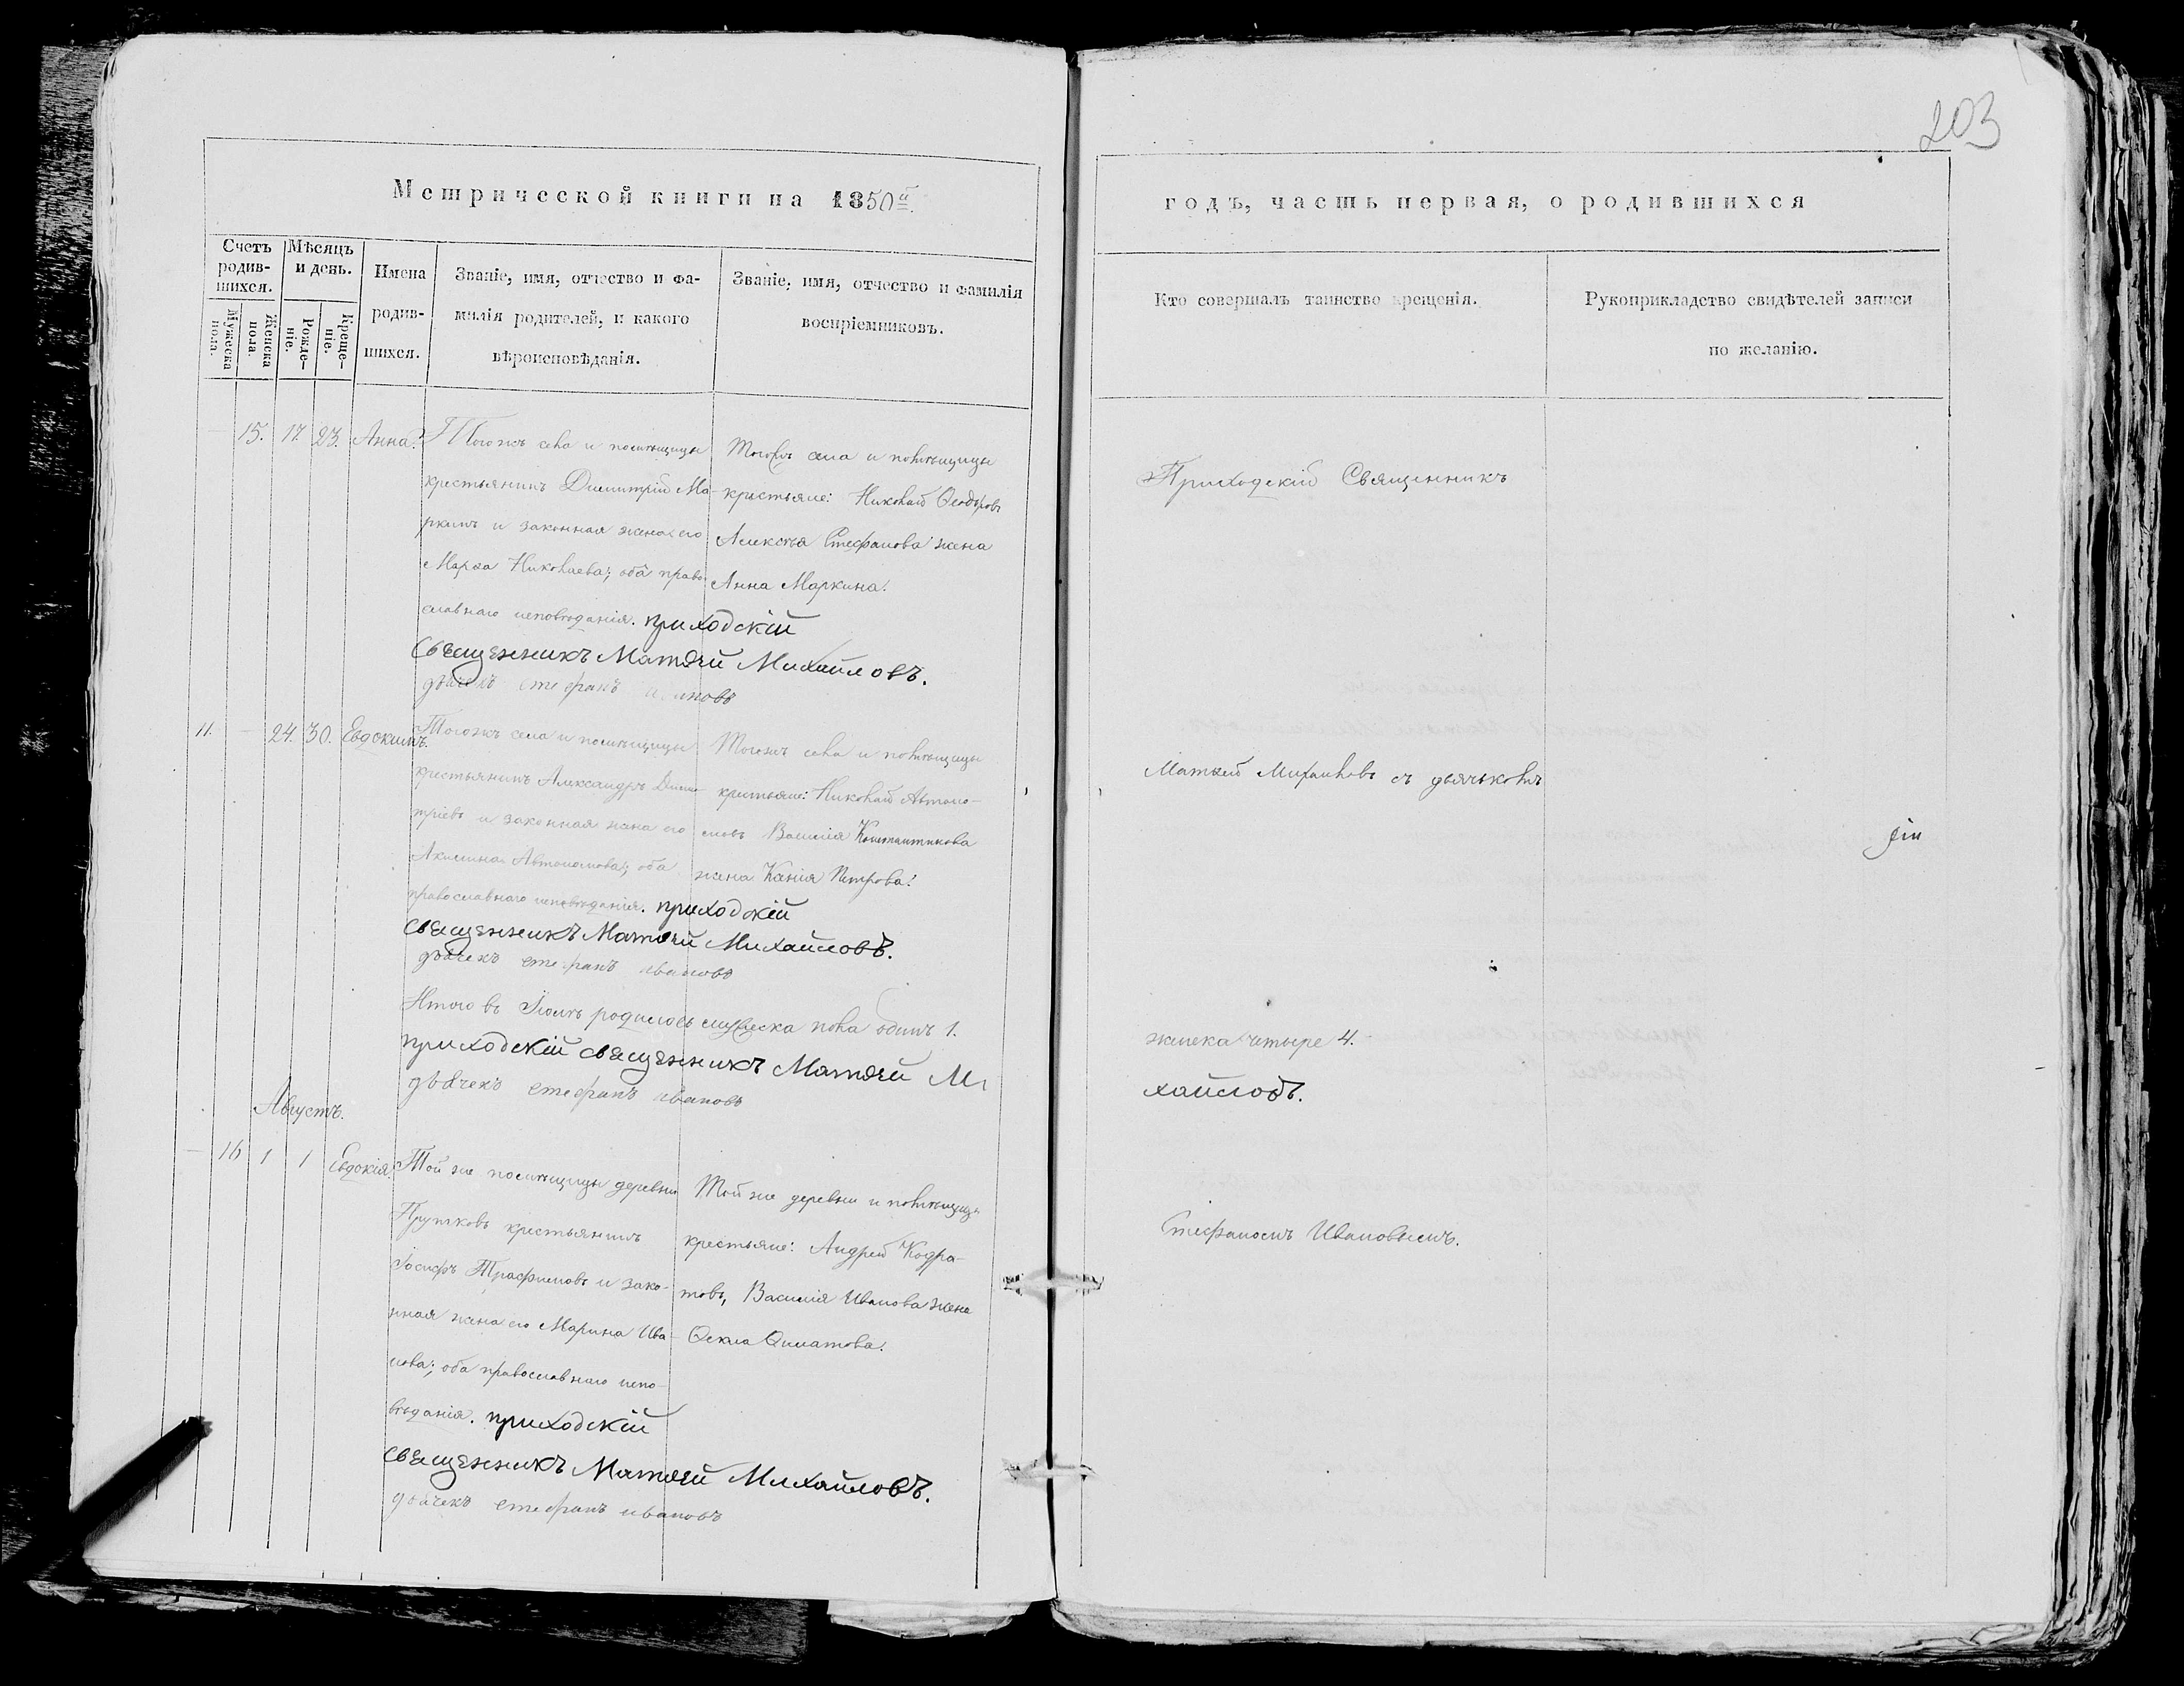 203
Метрической книги на 1850й.
годъ, часть первая, о родившихся
Счетъ родив-
шихся.
Мужеска пола.
Женска пола.
Мѣсяцъ
и день.
Рожде-
ніе.
Креще-
ніе.
Имена
родив-
шихся.
Званіе, имя, отчество и фа-
милія родителей, и какого
вѣроисповѣданія.
Званіе, имя, отчество и фамилія
воспріемниковъ.
Кто совершалъ таинство крещенія.
Рукоприкладство свидѣтелей записи
по желанію.
15. 17. 23. Анна.
Тогожъ села и помѣщицы
крестьянинъ Димитрій Ма-
ркинъ и законная жена его
Марѳа Николаева; оба право-
славнаго исповѣданія. приходскій
священникъ Матѳей Михайловъ.
дьячекъ стефанъ ивановъ
Тогожъ села и помѣщицы
крестьяне: Николай Ѳеодоровъ
Алексѣя Стефанова жена
Анна Маркина.
11. - 24. 30. Евдокимъ.
Тогожъ села и помѣщицы
крестьянинъ Александръ Дими-
тріевъ и законная жена его
Акилина Автономова; оба
православнаго исповѣданія. приходскій
священникъ Матѳей Михайловъ.
дьячекъ стефанъ ивановъ
Тогожъ села и помѣщицы
крестьяне: Николай Автоно-
мовъ Василія Константинова
жена Ксенія Петрова.
Итого въ Іюлѣ родилось мужеска пола одинъ 1.
приходскій священникъ Матѳей Ми
дьячекъ стефанъ ивановъ
Августъ.
- 16 1 1 Евдокія.
Той же помѣщицы деревни
Прутковъ крестьянинъ
Іосифъ Трофимовъ и зако-
нная жена его Марина Ива-
нова; оба православнаго испо-
вѣданія. приходскій
священникъ Матѳей Михайловъ.
дьячекъ стефанъ ивановъ
Той же деревни и помѣщицы
крестьяне: Андрей Кодра-
товъ, Василія Иванова жена
Ѳекла
Приходскій Священникъ
Матѳей Михайловъ съ дьячкомъ
женска четыре 4.
хайловъ.
Стефаномъ Ивановымъ.